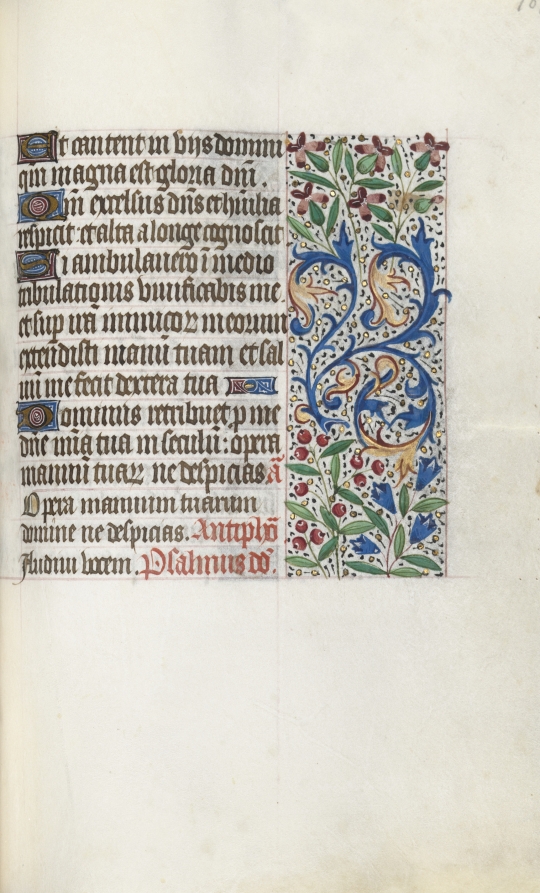 Et cantent in viis domini
qm magna est gloria dni.
Qm excelsus dns et humilia
respicit: et alta a longe cognoscit
Si ambulavero i medio
tribulationis vivificabis me.
et sup ira inimicoꝝ meorum
extendisti manu tuam et sal
uu me fecit dextera tua
Dominus retribuet p me
dne mia tua in seculu: opera
manuu tuaꝝ ne despicias ā
Opera manuum tuarum
domine ne despicias. Antipho
Audivi vocem. Psalmus dd.